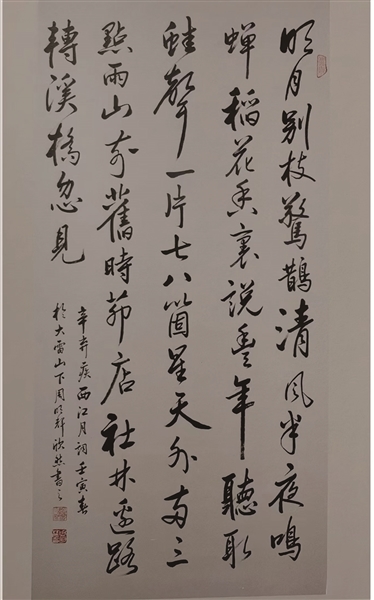 明月別枝驚鵲清風半夜鳴
蟬稻花香裏說豐年聽取
蛙聲一片七八箇星天外兩三
點雨山前舊時茆店社林邊路
轉溪橋忽見
辛弃疾西江月詞壬寅春
於大雷山下周明欣然書之